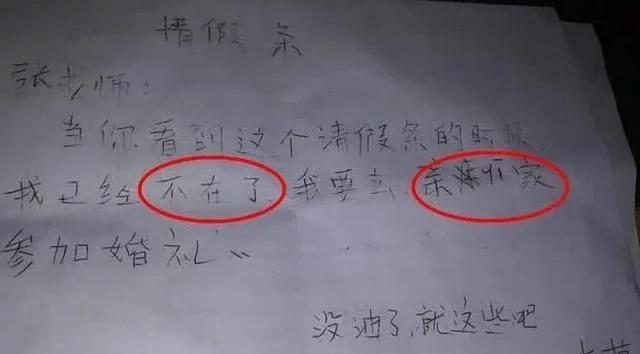 请假条
张老师：
当你看到这个请假条的时候，
我已经不在了，我要去亲戚家
参加婚礼。
没油了，就这些吧